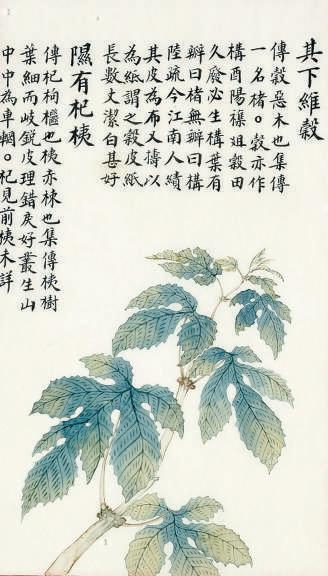 其下維榖
傳榖惡木也集傳
一名楮。榖亦作
構酉陽雜俎榖田
久廢必生構葉有
瓣曰楮無瓣曰構
陸疏今江南人績
其皮為布又擣以
為紙謂之榖皮紙
長數丈潔白甚好
隰有杞桋
傳杞枸檵也桋赤楝也集傳桋樹
葉細而岐銳皮理錯戾好叢生山
中中為車輞。杞見前桋未詳